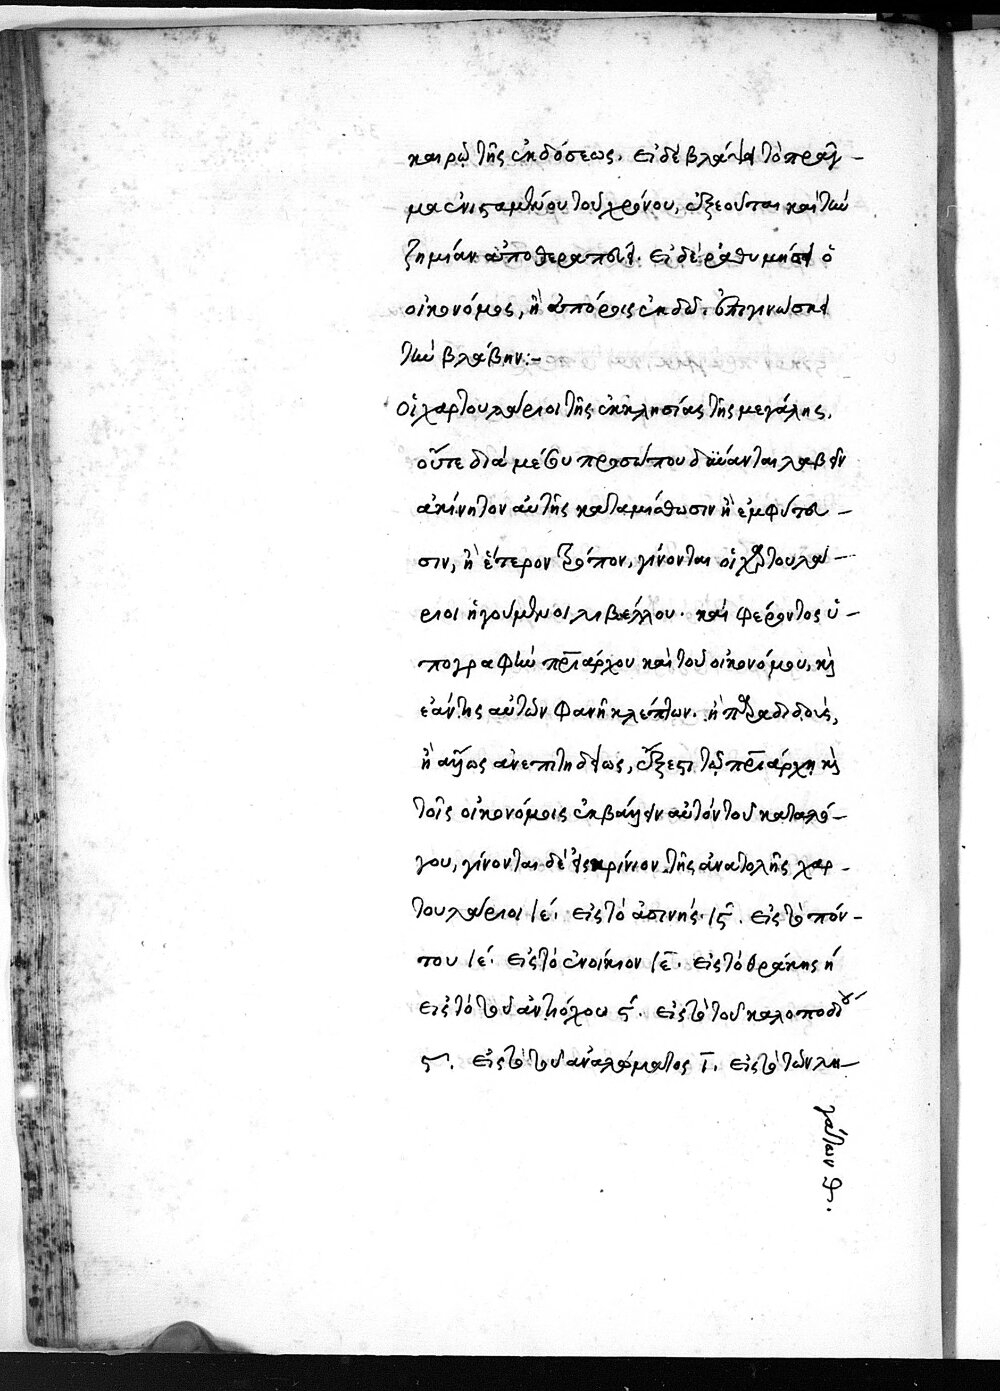 καιρῷ τῆς ἐκδόσεως. εἰ δὲ βλάψει τὸ πρᾶγ-
μα ἐνισταμένου τοῦ χρόνου, ἐξεοῦται καὶ τὴν
ζημίαν ἀποθεραπεύει. εἰ δὲ ῥαθυμήσει ὁ
οἰκονόμος, ἢ ἀπόροις ἐκδῷ. ἐπιγινώσκει
τὴν βλάβην:-
Οἱ χαρτουλάριοι τῆς ἐκκλησίας τῆς μεγάλης.
οὔτε διὰ μέσου προσώπου δύνανται λαβεῖν
ἀκίνητον αὐτῆς κατὰ μίσθωσιν ἢ ἐμφύτευ-
σιν, ἢ ἕτερον τρόπον, γίνονται οἱ χαρτουλά-
ριοι ἡγούμενοι λιβέλλου. καὶ φέροντος ὑ-
πογραφὴν πριάρχου καὶ τοῦ οἰκονόμου, κὶ
ἐάν τις αὐτῶν φανῇ κλέπτων. ἢ παραδιδούς,
ἢ ἄλλως ἀνεπιτηδείως, ἔξεστι τῷ πριάρχῃ κὶ
τοῖς οἰκονόμοις ἐκβάλλειν αὐτὸν τοῦ καταλό-
γου, γίνονται δὲ εἰς σκρίνιον τῆς ἀνατολῆς χαρ-
τουλάριοι ιέ. εἰς τὸ ἀσινῆς ις. εἰς τὸ πόν-
του ιέ. εἰς τὸ ἐνοίκιον ιε. εἰς τὸ θράκης ή
εἰς τὸ τοῦ ἀντιόχου ς. εἰς τὸ τοῦ καλοποδίου
ς. εἰς τὸ τοῦ ἀναλώματος ι. εἰς τὸ τῶν λη-
γάτων θ.